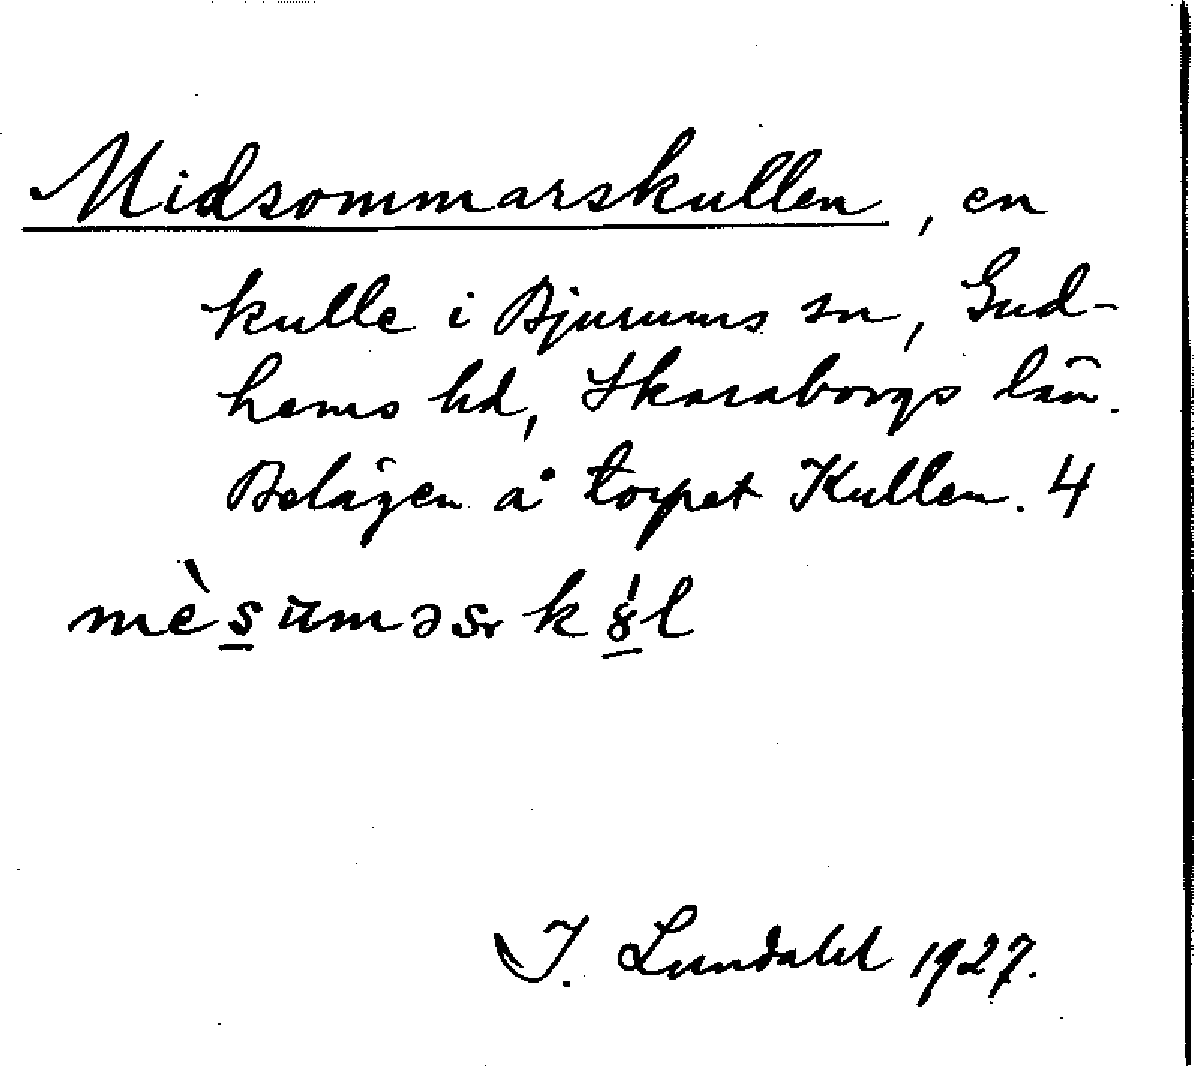 Midsommarskullen, en
kulle i Bjurums sn, Gud-
hems hd, Skaraborgs län.
Belägen å torpet Kullen. 4
I. Lundahl 1927.